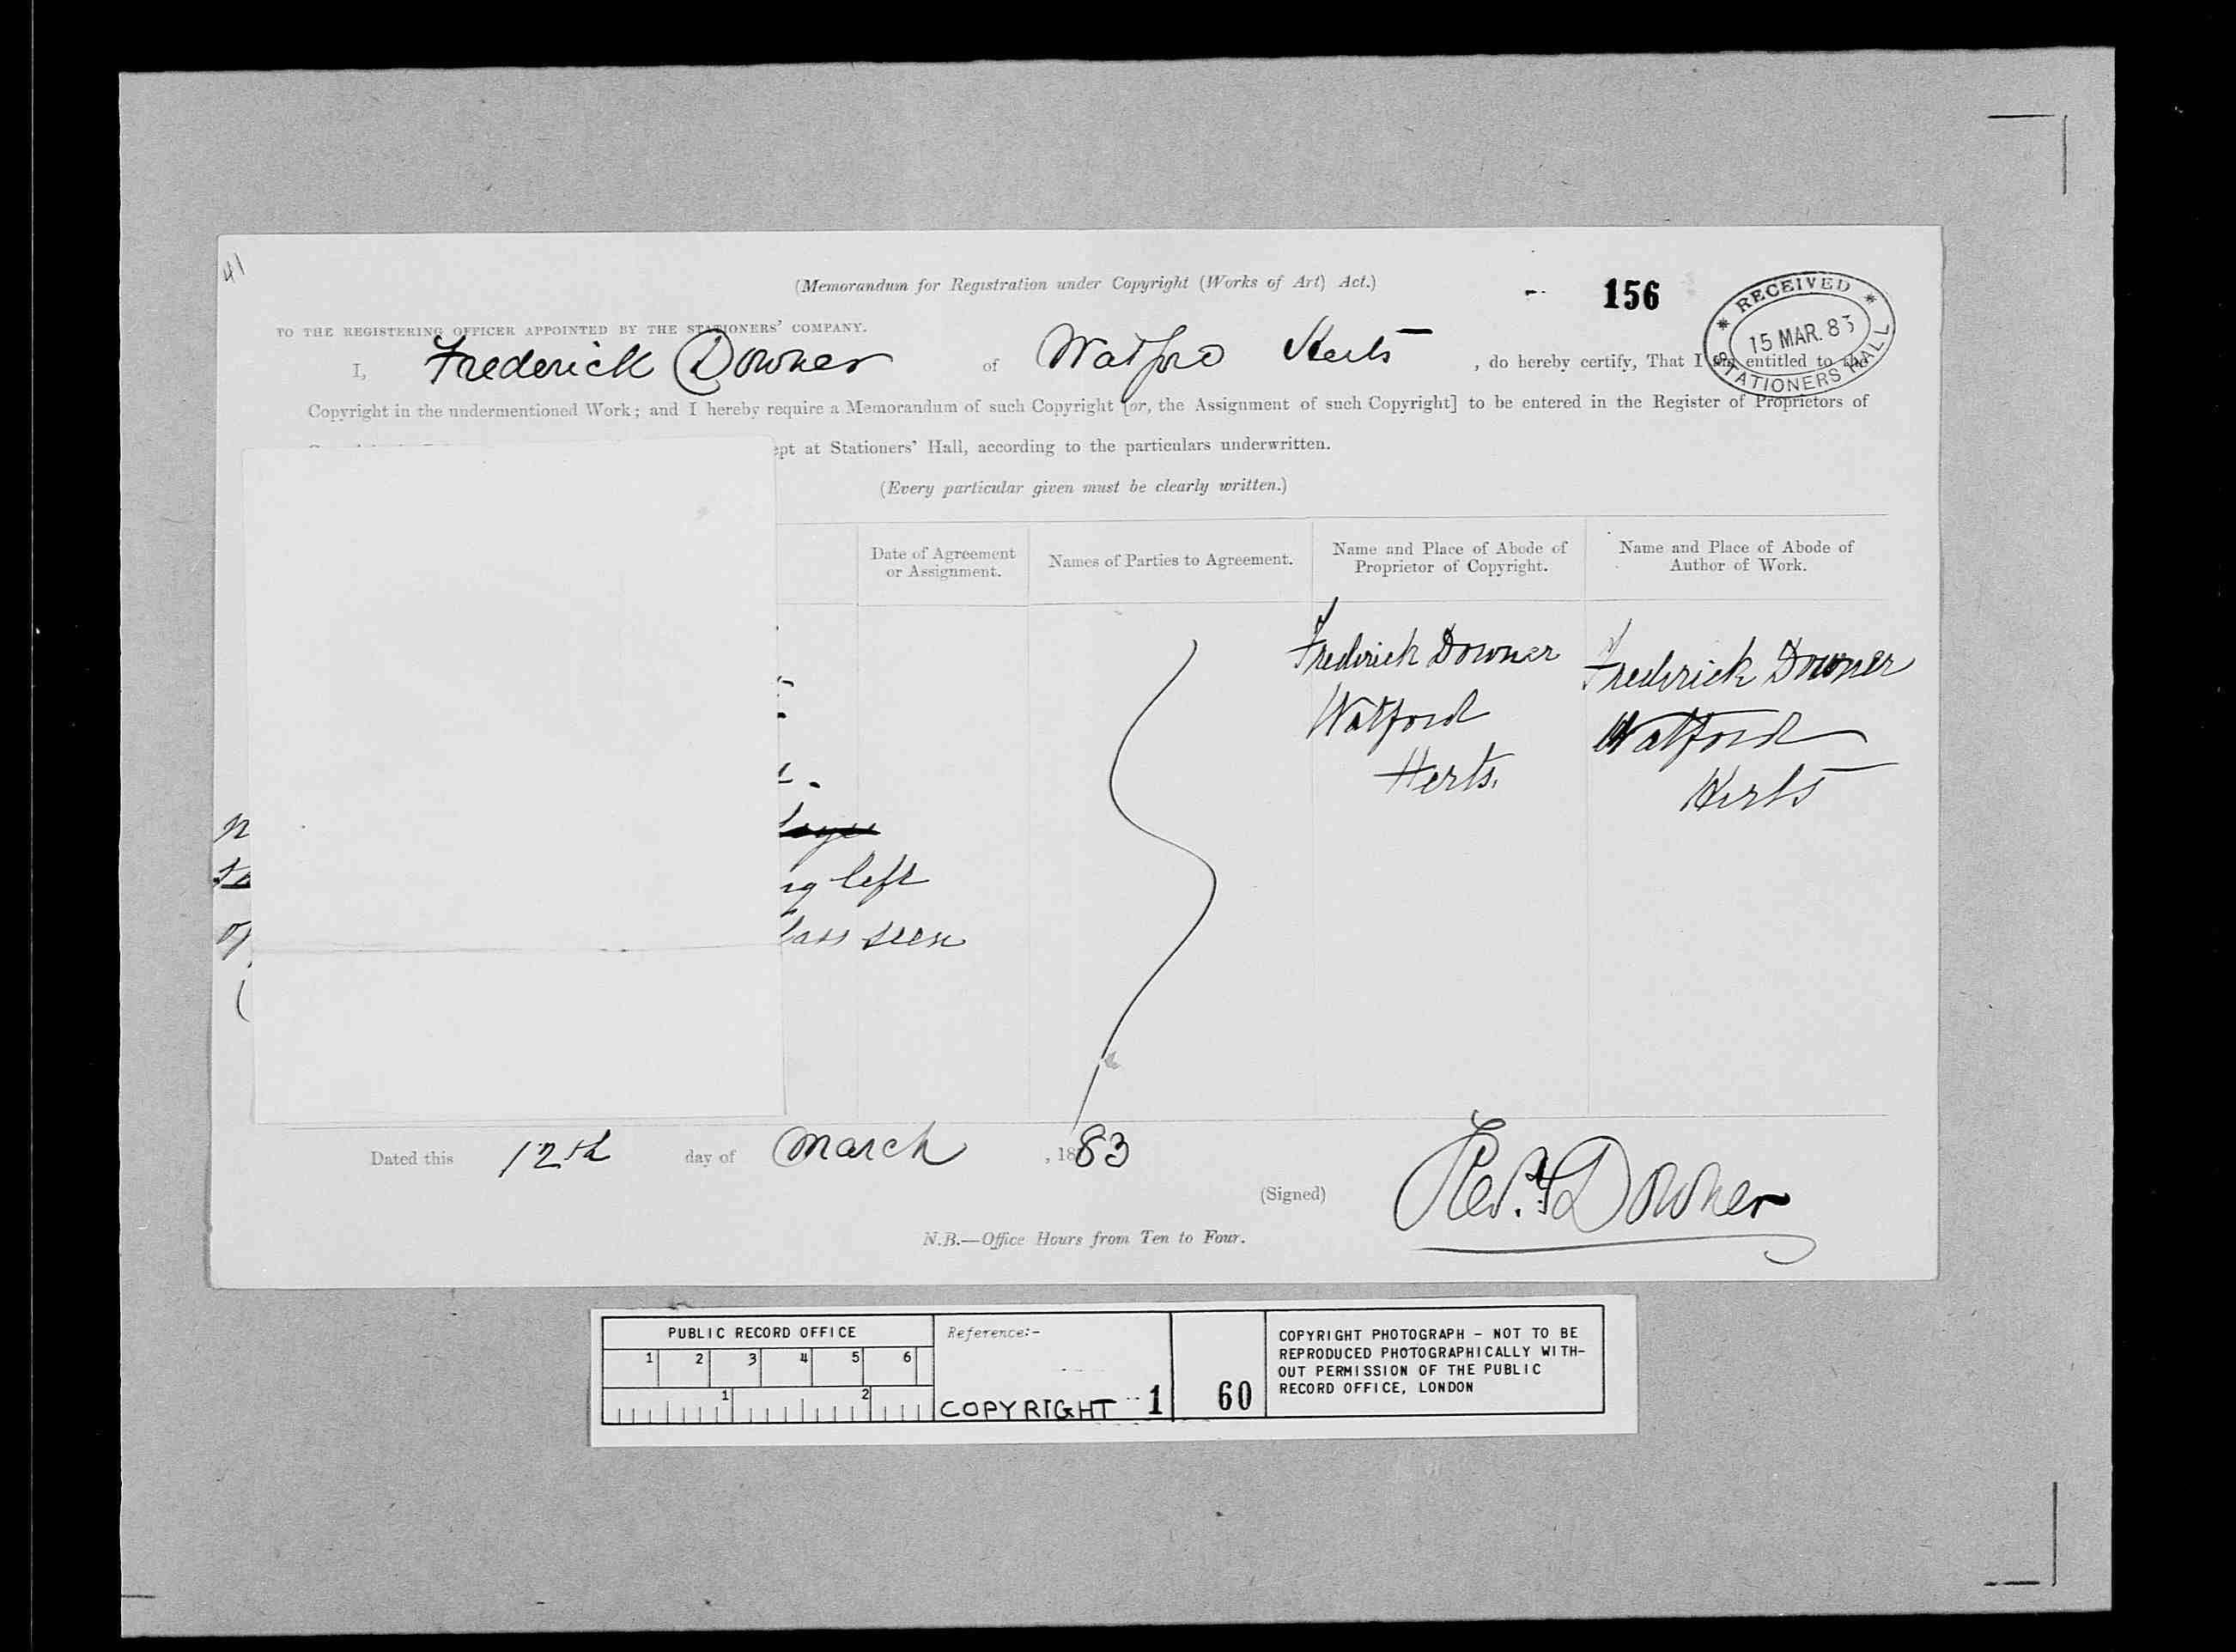 41
(Memorandum for Registration under Copyright (Works of Art) Act.)
156
RECEIVED
15 MAR. 83
STATIONERS HALL
TO THE REGISTERING OFFICER APPOINTED BY THE STATIONERS' COMPANY.
I, Frederick Downer of Watford Herts, do hereby certify, That I am entitled to the
Copyright in the undermentioned Work; and I hereby require a Memorandum of such Copyright [or, the Assignment of such Copyright] to be entered in the Register of Proprietors of
ept at Stationers' Hall, according to the particulars underwritten.
(Every particular given must be clearly written.)
Date of Agreement
or Assignment.
Names of Parties to Agreement.
Name and Place of Abode of
Proprietor of Copyright.
Name and Place of Abode of
Author of Work.
ng left
lass seen
Frederick Downer
Watford
Herts.
Frederick Downer
Watford
Herts
Dated this 12th day of March, 1883
(Signed) Fred. Downer
N.B.—Office Hours from Ten to Four.
PUBLIC RECORD OFFICE
1 2 3 4 5 6
1 2
Reference:-
COPYRIGHT 1
60
COPYRIGHT PHOTOGRAPH - NOT TO BE
REPRODUCED PHOTOGRAPHICALLY WITH-
OUT PERMISSION OF THE PUBLIC
RECORD OFFICE, LONDON